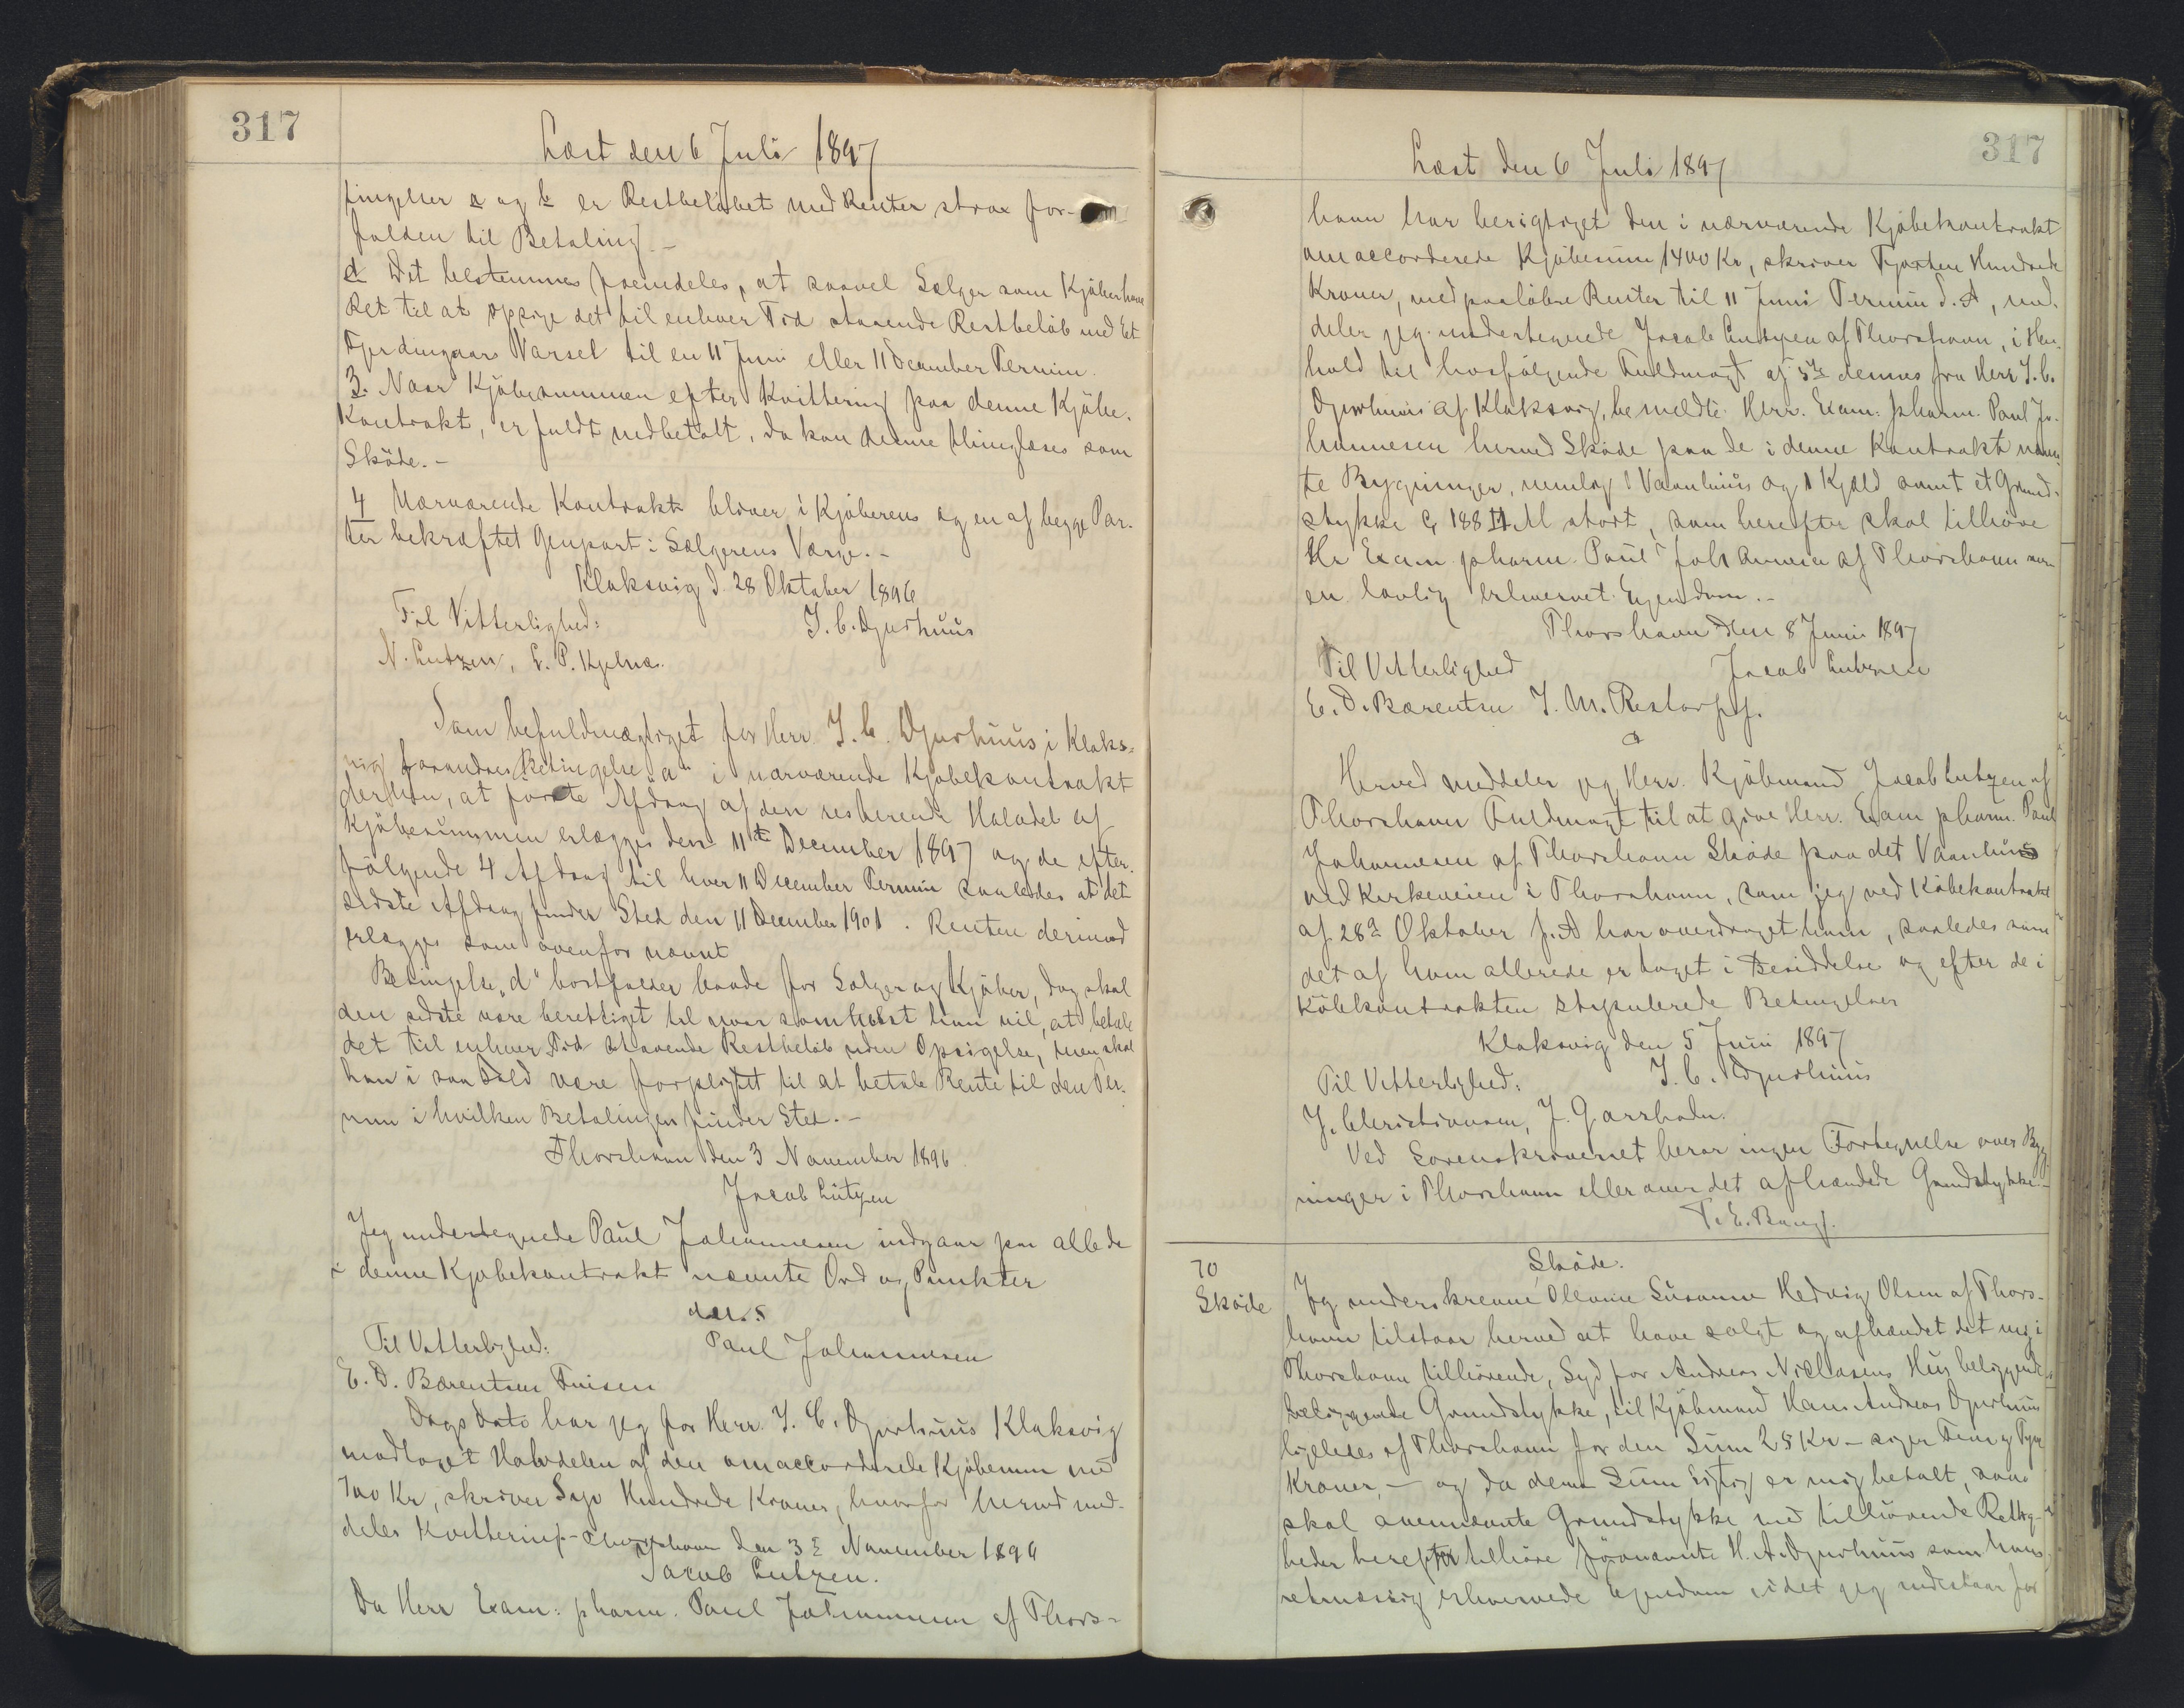 317
Læst den 6 Juli 1897
tingelser a og b er Restbeløbet med Renter strax for-
falden til Betaling. -
d Det bestemmes fremdeles, at saavel Sælger som Kjøber have
Ret til at opsige det til enhver Tid staaende Restbeløb med Et
Fjerdingaars Varsel til en 11 Juni eller 11 December Termin.
3. Naar Kjøbesummen efter Kvittering paa denne Kjøbe-
Kontrakt, er fuldt udbetalt, da kan denne thinglæses som
Skøde. -
4 Nærværende Kontrakt bliver i Kjøberens og en af begge Par-
ter bekræftet Genpart i Sælgerens Værge. -
Klaksvig d. 28 Oktober 1896
Til Vitterlighed: J. C. Djurhuus
N. Lützen, E. P. Kjelnæs.
Som befuldmægtiget for Herr J. C. Djurhuus i Klaks-
vig forandres Betingelse "a" i nærværende Kjøbekontrakt
derhen, at første Afdrag af den resterende Halvdel af
Kjøbesummen erlægges den 11te December 1897 og de efter-
følgende 4 Afdrag til hver 11 December Termin saaledes at det
sidste Afdrag finder Sted den 11 December 1901. Renten derimod
erlægges som ovenfor nævnt
Betingelse "d" bortfalder baade for Sælger og Kjøber, dog skal
den sidste være berettiget til naar somhelst han vil, at betale
det til enhver Tid staaende Restbeløb uden Opsigelse, men skal
han i saa Fald være forpligtet til at betale Rente til den Ter-
min i hvilken Betalingen finder Sted. -
Thorshavn den 3 November 1896
Jacob Lützen
Jeg undertegnede Paul Johannesen indgaar paa alle de
i denne Kjøbekontrakt nævnte Ord og Punkter
d.u.s
Til Vitterlighed: Paul Johannesen
E. D. Bærentsen Finsen
Dags Dato har jeg for Herr. J. C. Djurhuus Klaksvig
modtaget Halvdelen af den omaccorderede Kjøbesum med
700 Kr, skriver Syv Hundrede Kroner, hvorfor herved med-
deles Kvittering. - Thorshavn den 3die November 1896
Jacob Lutzen.
Da Herr Exam: pharm. Paul Johannesen af Thors-
317
Læst den 6 Juli 1897
havn har berigtiget den i nærværende Kjøbekontrakt
omaccorderede Kjøbesum 1400 Kr, skriver Fjorten Hundrede
Kroner, med paaløbne Renter til 11 Juni Termin d. A, med-
deler jeg undertegnede Jacob Lutzen af Thorshavn, i Hen-
hold til hosfølgende Fuldmagt af 5te dennes fra Herr J. C.
Djurhuus af Klaksvig, bemeldte Herr. Exam: pharm. Paul Jo-
hannesen herved Skøde paa de i denne Kontrakt nævn-
te Bygninger, nemlig 1 Vaanhuus og 1 Kjeld samt et Grund-
stykke 188 Al stort, som herefter skal tilhøre
Hr Exam pharm. Paul Johannesen af Thorshavn som
en lovlig erhvervet Ejendom. -
Thorshavn den 8 Juni 1897
Til Vitterlighed Jacob Lutzen
E. D. Bærentsen J. M. Restorff.
Herved meddeler jeg Herr. Kjøbmand Jacob Lutzen af
Thorshavn Fuldmagt til at give Herr. Exam pharm. Paul
Johannesen af Thorshavn Skøde paa det Vaanhuus
ved Kirkeveien i Thorshavn, som jeg ved Købekontrakt
af 28de Oktober f. A har overdraget ham, saaledes som
det af ham allerede er taget i Besiddelse og efter de i
Købekontrakten stipulerede Betingelser
Klaksvig den 5 Juni 1897
Til Vitterlighed: J. C. Djurhuus
J. Christiansen, J. Garrholm.
Ved Sorenskriveriet beror ingen Fortegnelse over Byg-
ninger i Thorshavn eller over det afhændede Grundstykke. -
T. E. Bang.
Skøde.
70
Skøde
Jeg underskrevne Susanne Hedvig Olsen af Thors-
havn tilstaar herved at have solgt og afhændet det mig i
Thorshavn tilhørende, Syd for Andreas Niclasens Hus beliggende
beliggende Grundstykke, til Kjøbmand Hans Andreas Djurhuus
ligeledes af Thorshavn for den Sum 25 Kr - siger Fem og Tyve
Kroner, - og da denne Sum rigtig er mig betalt, saa
skal ovennævnte Grundstykke med tilhørende Rettig-
heder herefter tilhøre førnævnte H. A. Djurhuus som hans
retmæssig erhvervede Ejendom idet jeg indestaar for